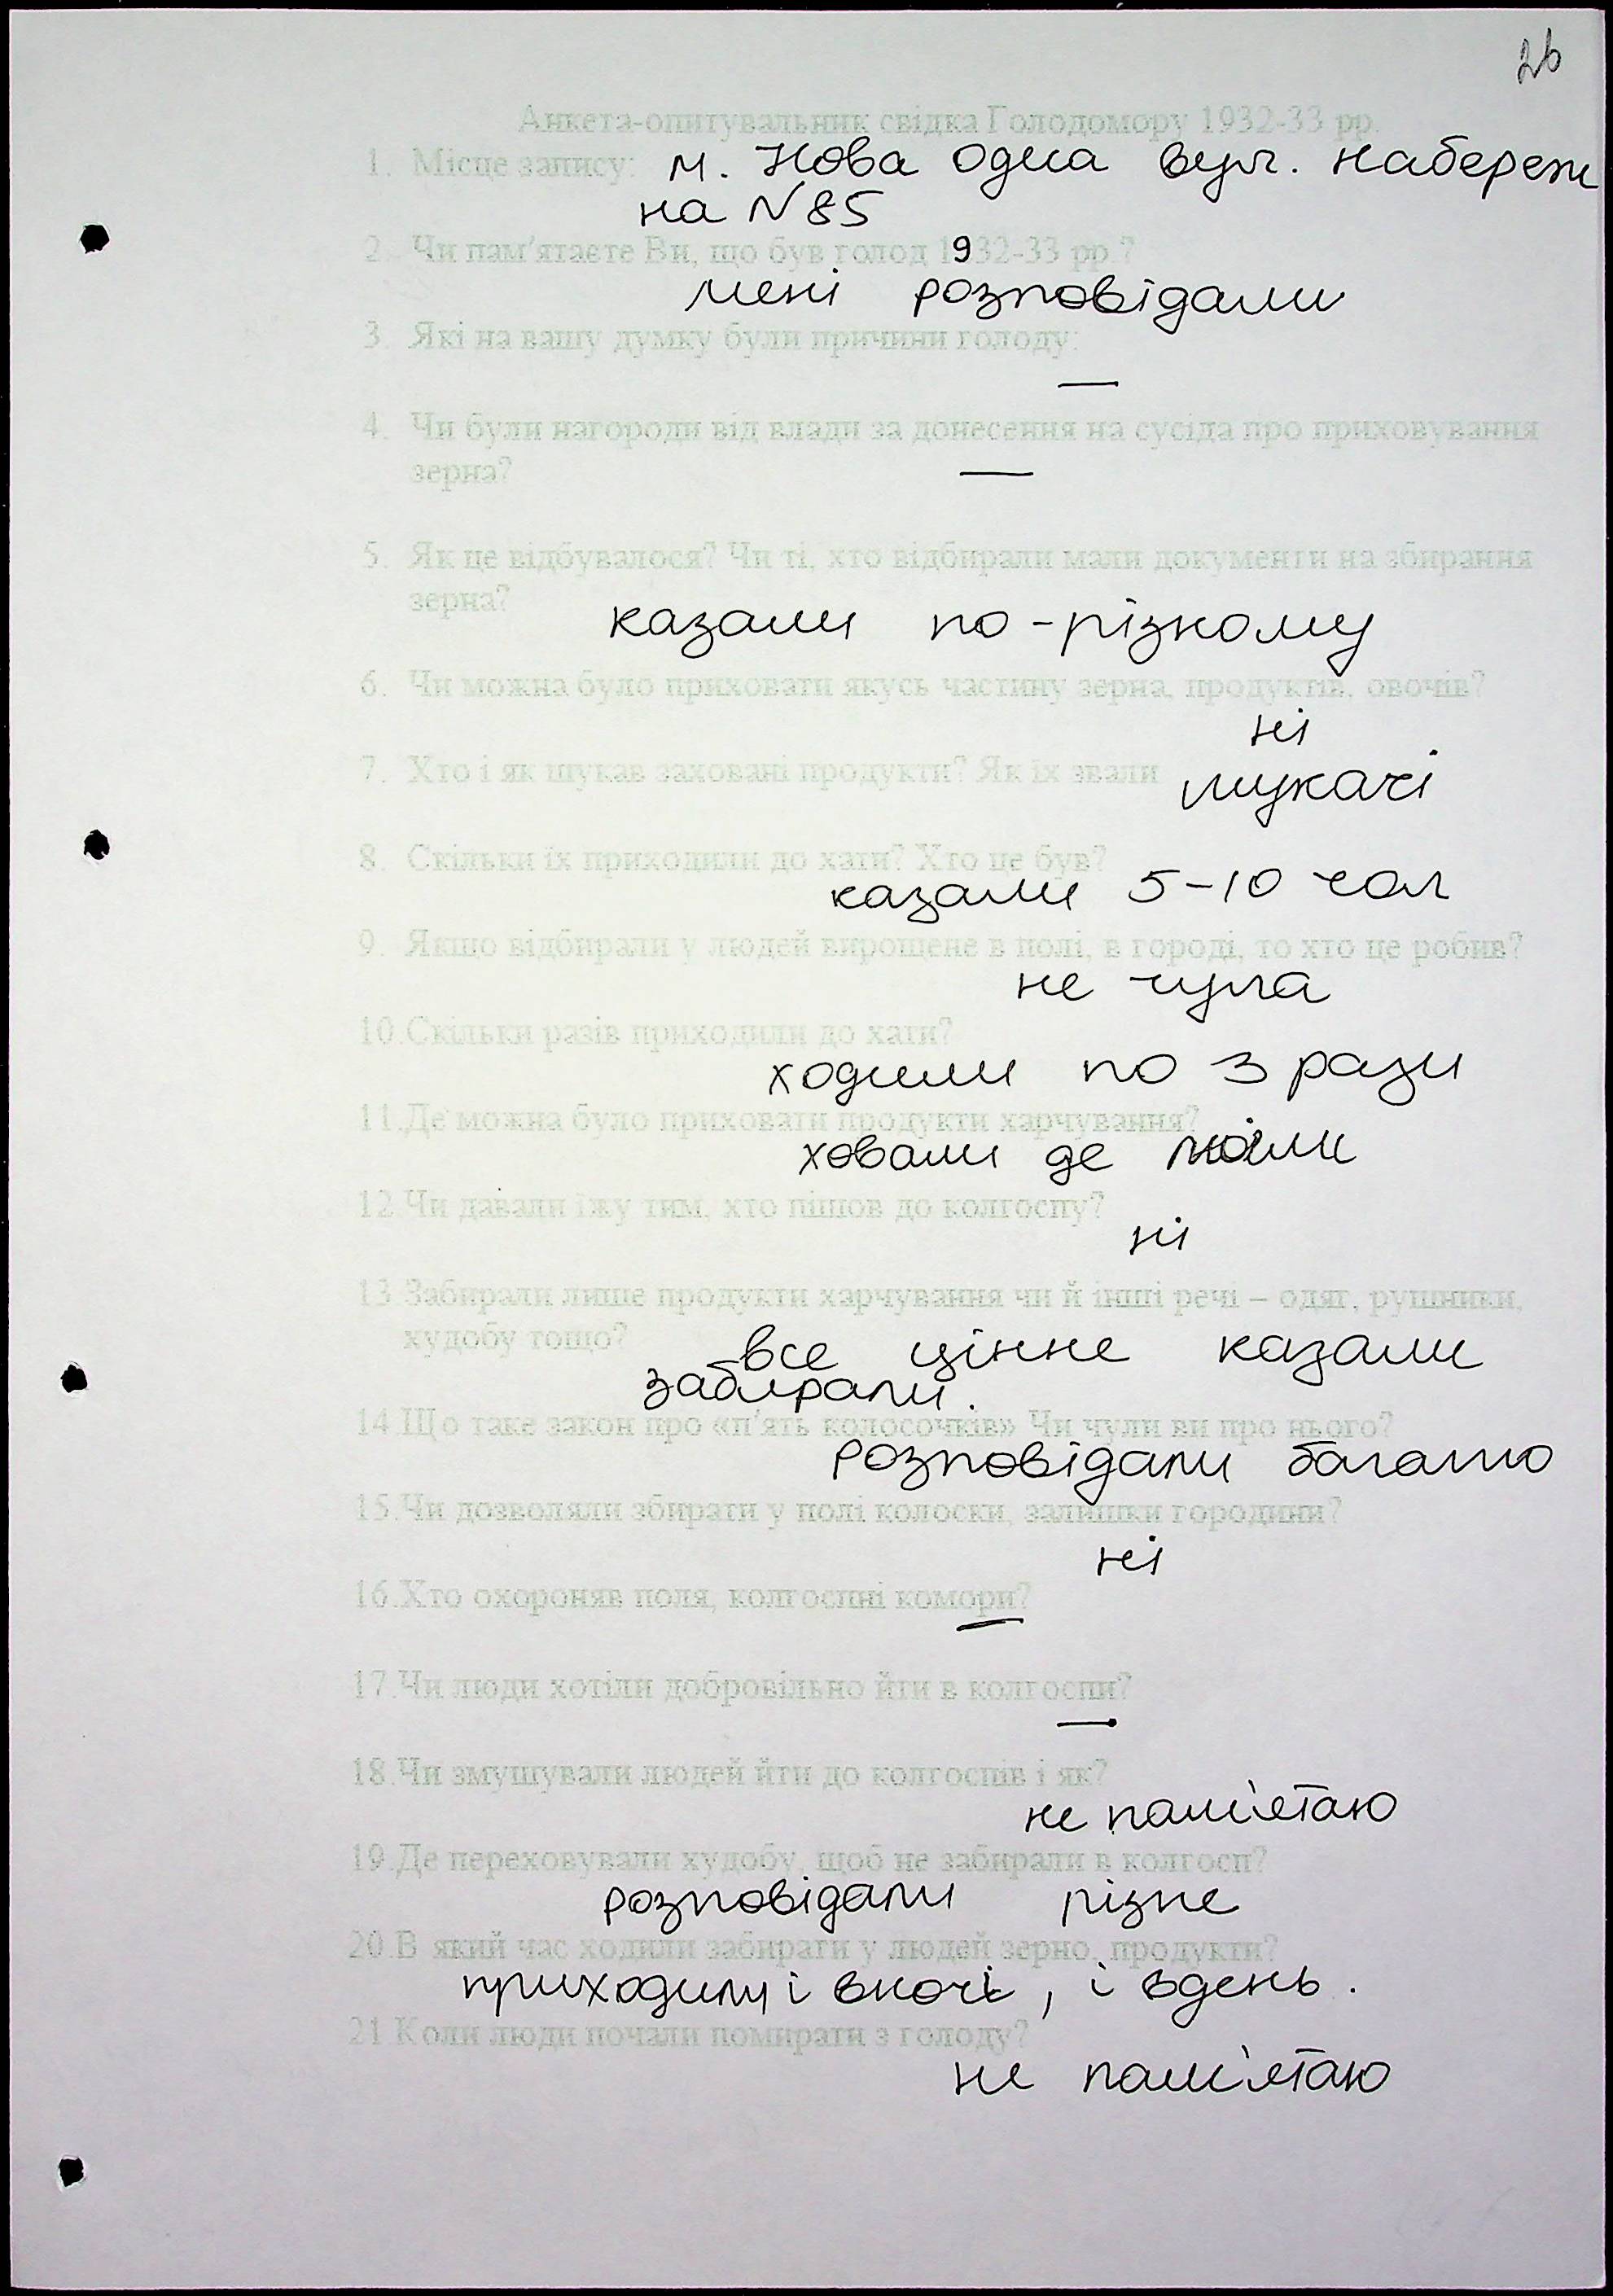 26
Анкета-опитувальник свідка Голодомору 1932-33 рр.
1. Місце запису: м. Нова Одеса вул. Набереж
на №85
2. Чи пам'ятаєте Ви, що був голод 1932-33 рр.?
мені розповідали
3. Які на вашу думку були причини голоду:
—
4. Чи були нагороди від влади за донесення на сусіда про приховування
зерна? —
5. Як це відбувалося? Чи ті, хто відбирали мали документи на збирання
зерна? казали по-різному
6. Чи можна було приховати якусь частину зерна, продуктів, овочів?
ні
7. Хто і як шукав заховані продукти? Як їх звали шукачі
8. Скільки їх приходили до хати? Хто це був?
казали 5-10 чол
9. Якщо відбирали у людей вирощене в полі, в городі, то хто це робив?
не чула
10.Скільки разів приходили до хати?
ходили по 3 рази
11.Де можна було приховати продукти харчування?
ховали де
12.Чи давали їжу тим, хто пішов до колгоспу?
ні
13.Забирали лише продукти харчування чи й інші речі – одяг, рушники,
худобу тощо? все цінне казали
забирали.
14.Що таке закон про «п'ять колосочків» Чи чули ви про нього?
розповідали багато
15.Чи дозволяли збирати у полі колоски, залишки городини?
ні
16.Хто охороняв поля, колгоспні комори?
—
17.Чи люди хотіли добровільно йти в колгоспи?
—
18.Чи змушували людей йти до колгоспів і як?
не пам'ятаю
19.Де переховували худобу, щоб не забирали в колгосп?
розповідали різне
20.В який час ходили забирати у людей зерно, продукти?
приходили і вночі, і вдень.
21 Коли люди почали помирати з голоду?
не пам'ятаю